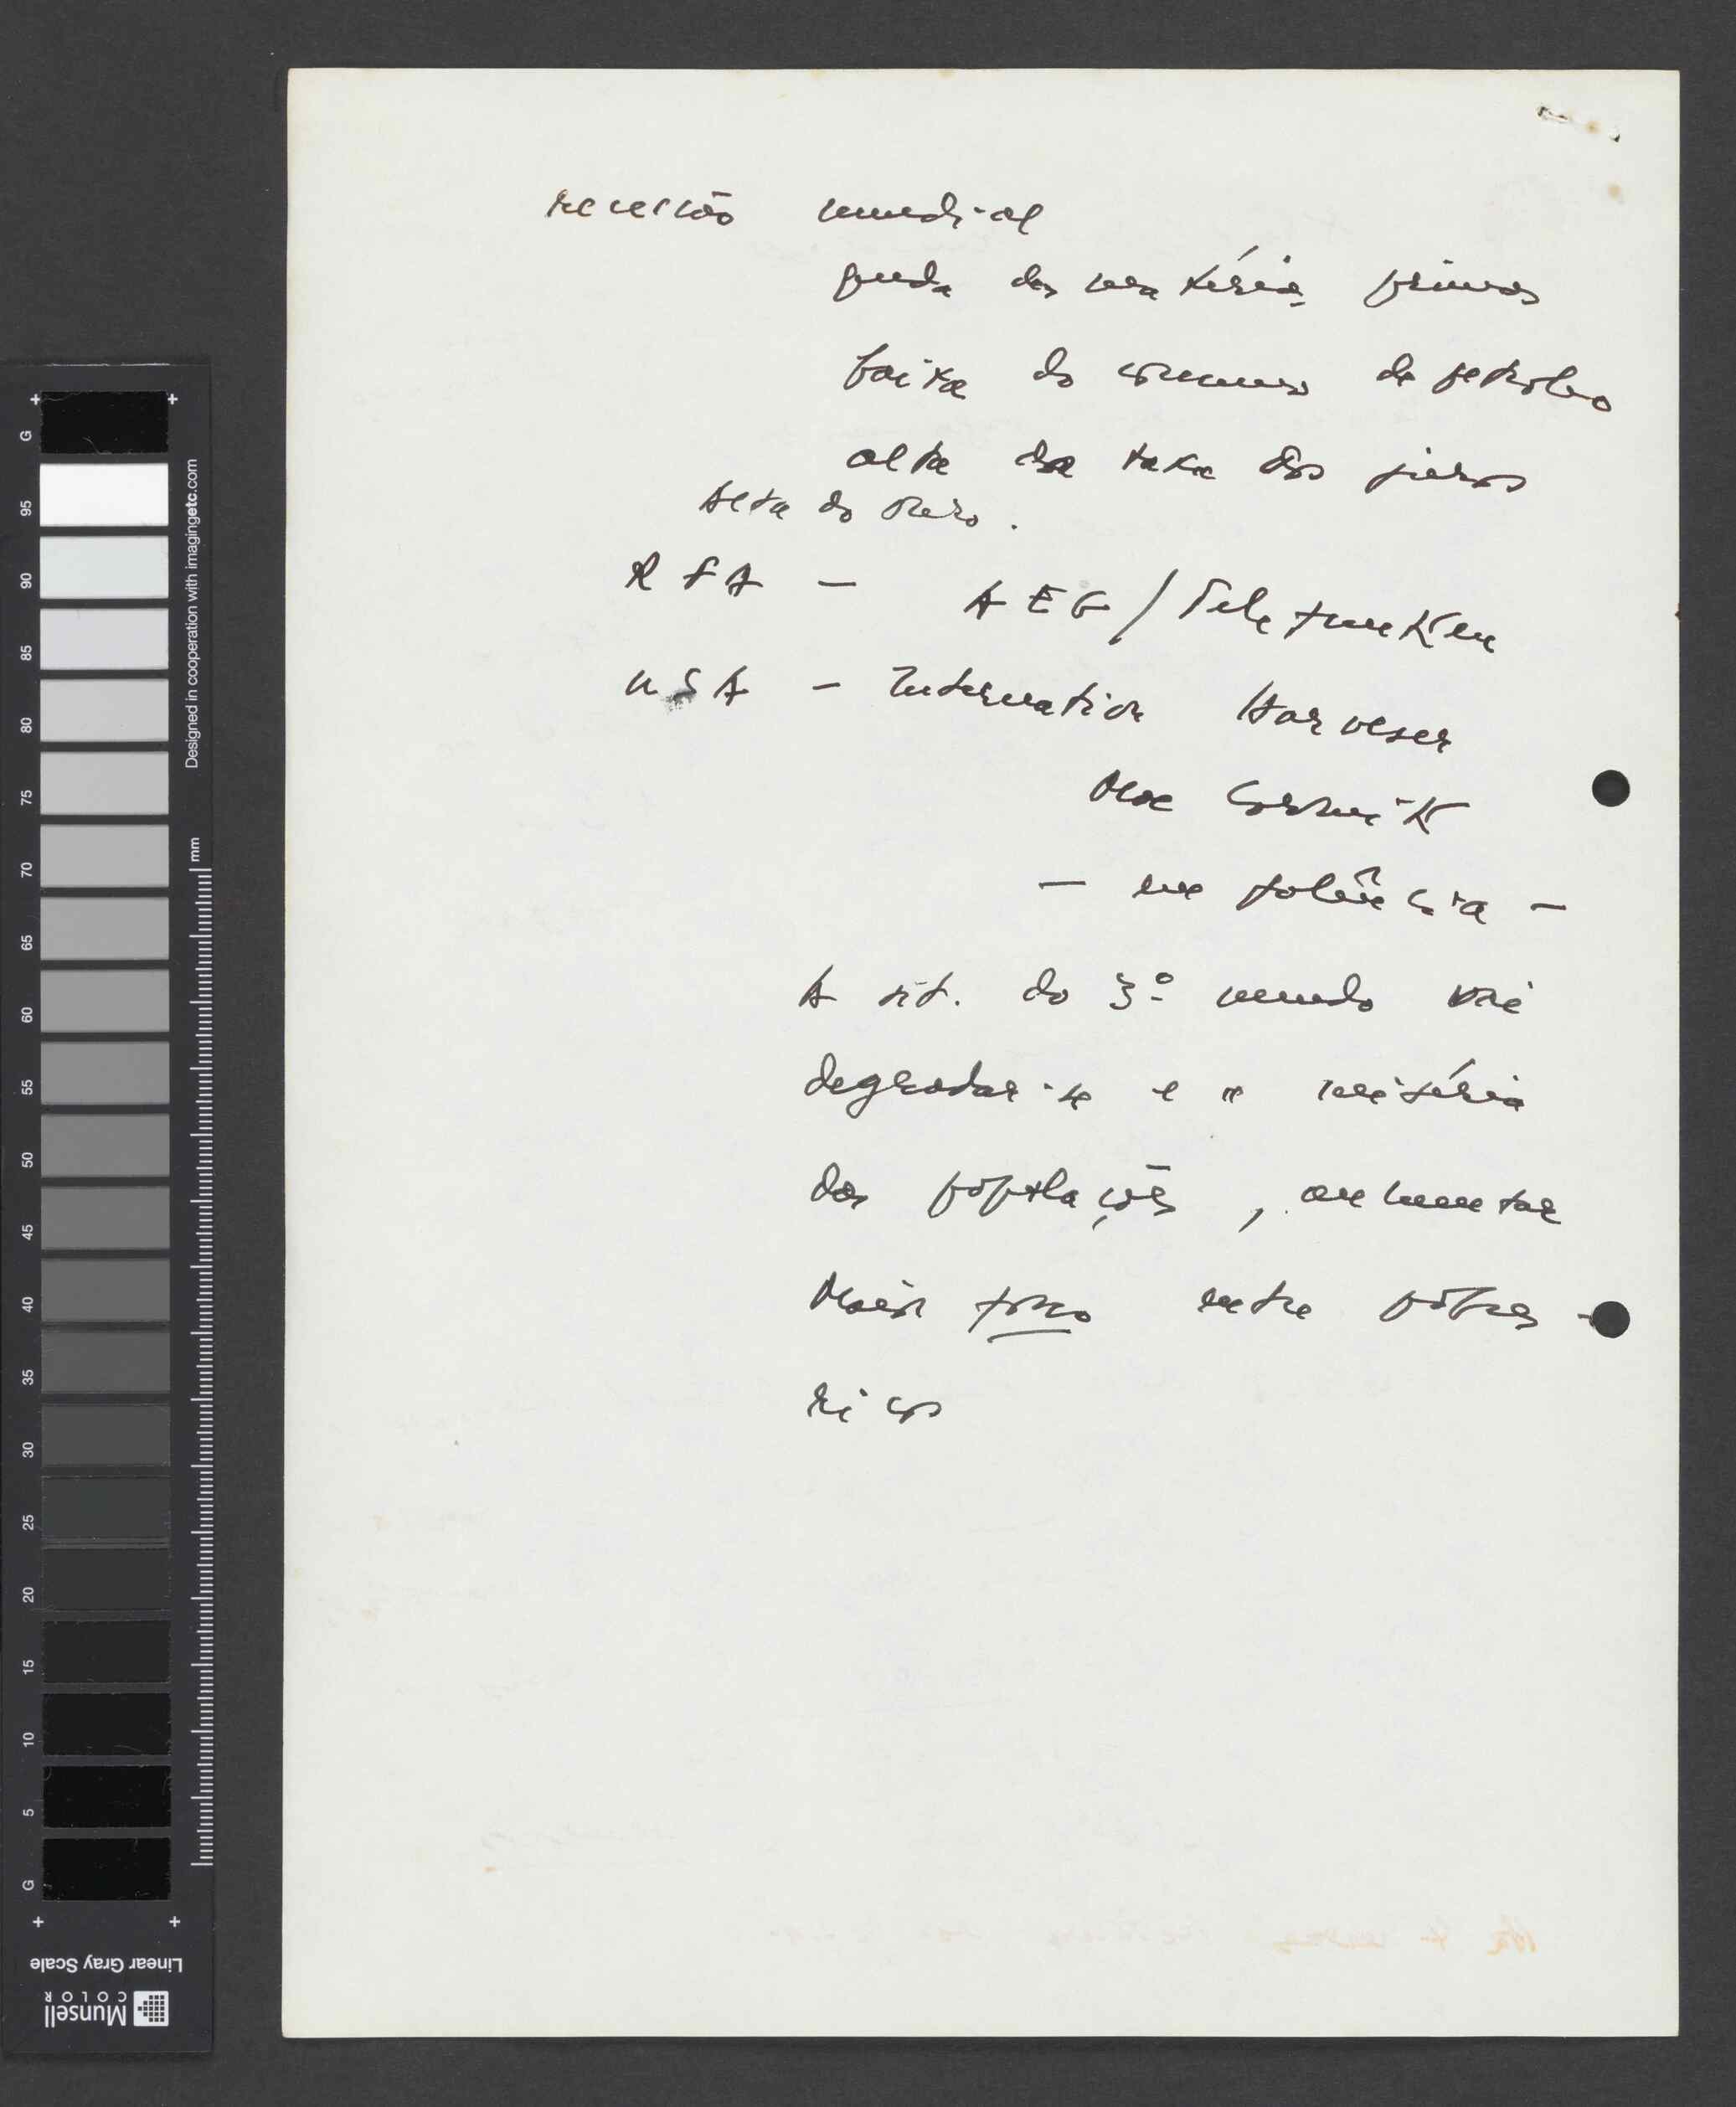 recessão mundial
queda das matérias primas
baixa do consumo de petroleo
alta da taxa dos juros
Alta do Ouro.
RFA - AEG/Telefunken
USA - Internation Harveser
Mac Cormik
- na falência -
A sit. do 3º mundo vai
degradar-se e a miséria
das populações, aumentar
Maior fosso entre pobres -
ricos
G
95
90
85
80
75
70
65
60
55
50
45
40
35
30
25
20
15
10
5
G
Designed in cooperation with imagingetc.com
mm
Linear Gray Scale
Munsell
COLOR